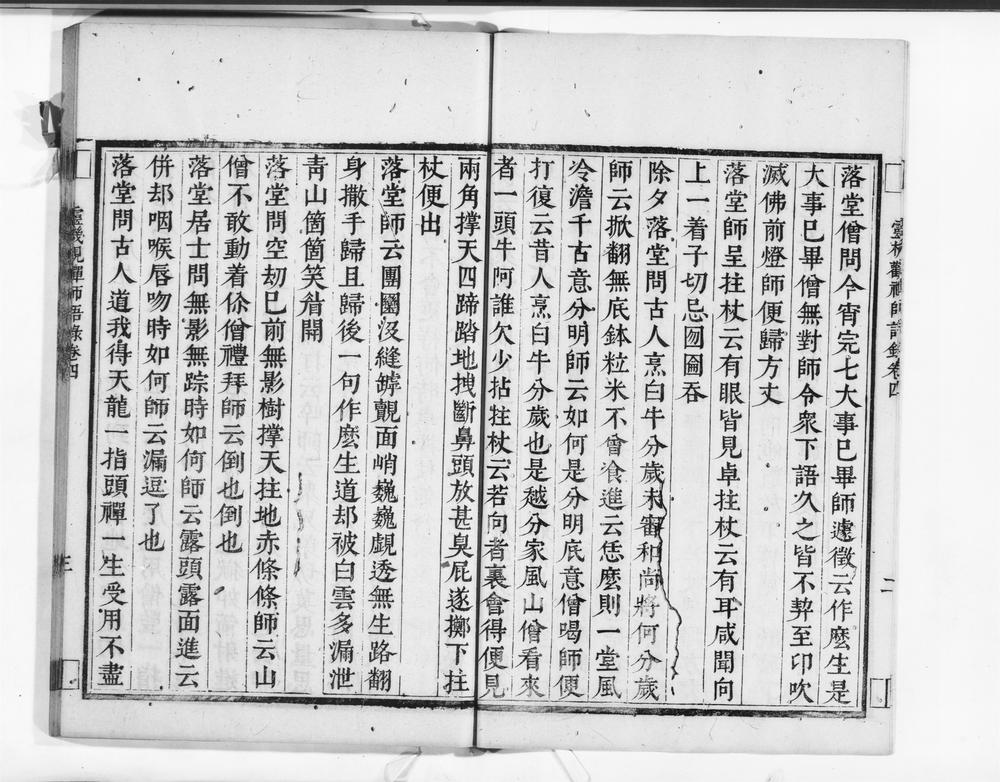 落堂僧問今宵完七大事已畢師遽徵云作麽生是
大事已畢僧無對師令衆下語久之皆不契至印吹
滅佛前燈師便歸方丈
落堂師呈拄杖云有眼皆見卓拄杖云有耳咸聞向
上一着子切忌囫圇吞
除夕落堂問古人烹白牛分歲未審和尚將何分歲
師云掀翻無底鉢粒米不曾飡進云恁麽則一堂風
冷澹千古意分明師云如何是分明底意僧喝師便
打復云昔人烹白牛分歲也是越分家風山僧看來
者一頭牛阿誰欠少拈拄杖云若向者裏會得便見
兩角撑天四蹄踏地拽斷鼻頭放甚臭屁遂擲下拄
杖便出
落堂師云團團没縫罅覿面峭巍巍覷透無生路翻
身撒手歸且歸後一句作麽生道却被白雲多漏泄
青山箇箇笑眉開
落堂問空劫已前無影樹撑天拄地赤條條師云山
僧不敢動着伱僧禮拜師云倒也倒也
落堂居士問無影無踪時如何師云露頭露面進云
併却咽喉唇吻時如何師云漏逗了也
落堂問古人道我得天龍一指頭禪一生受用不盡
禪師語錄卷四
二
三